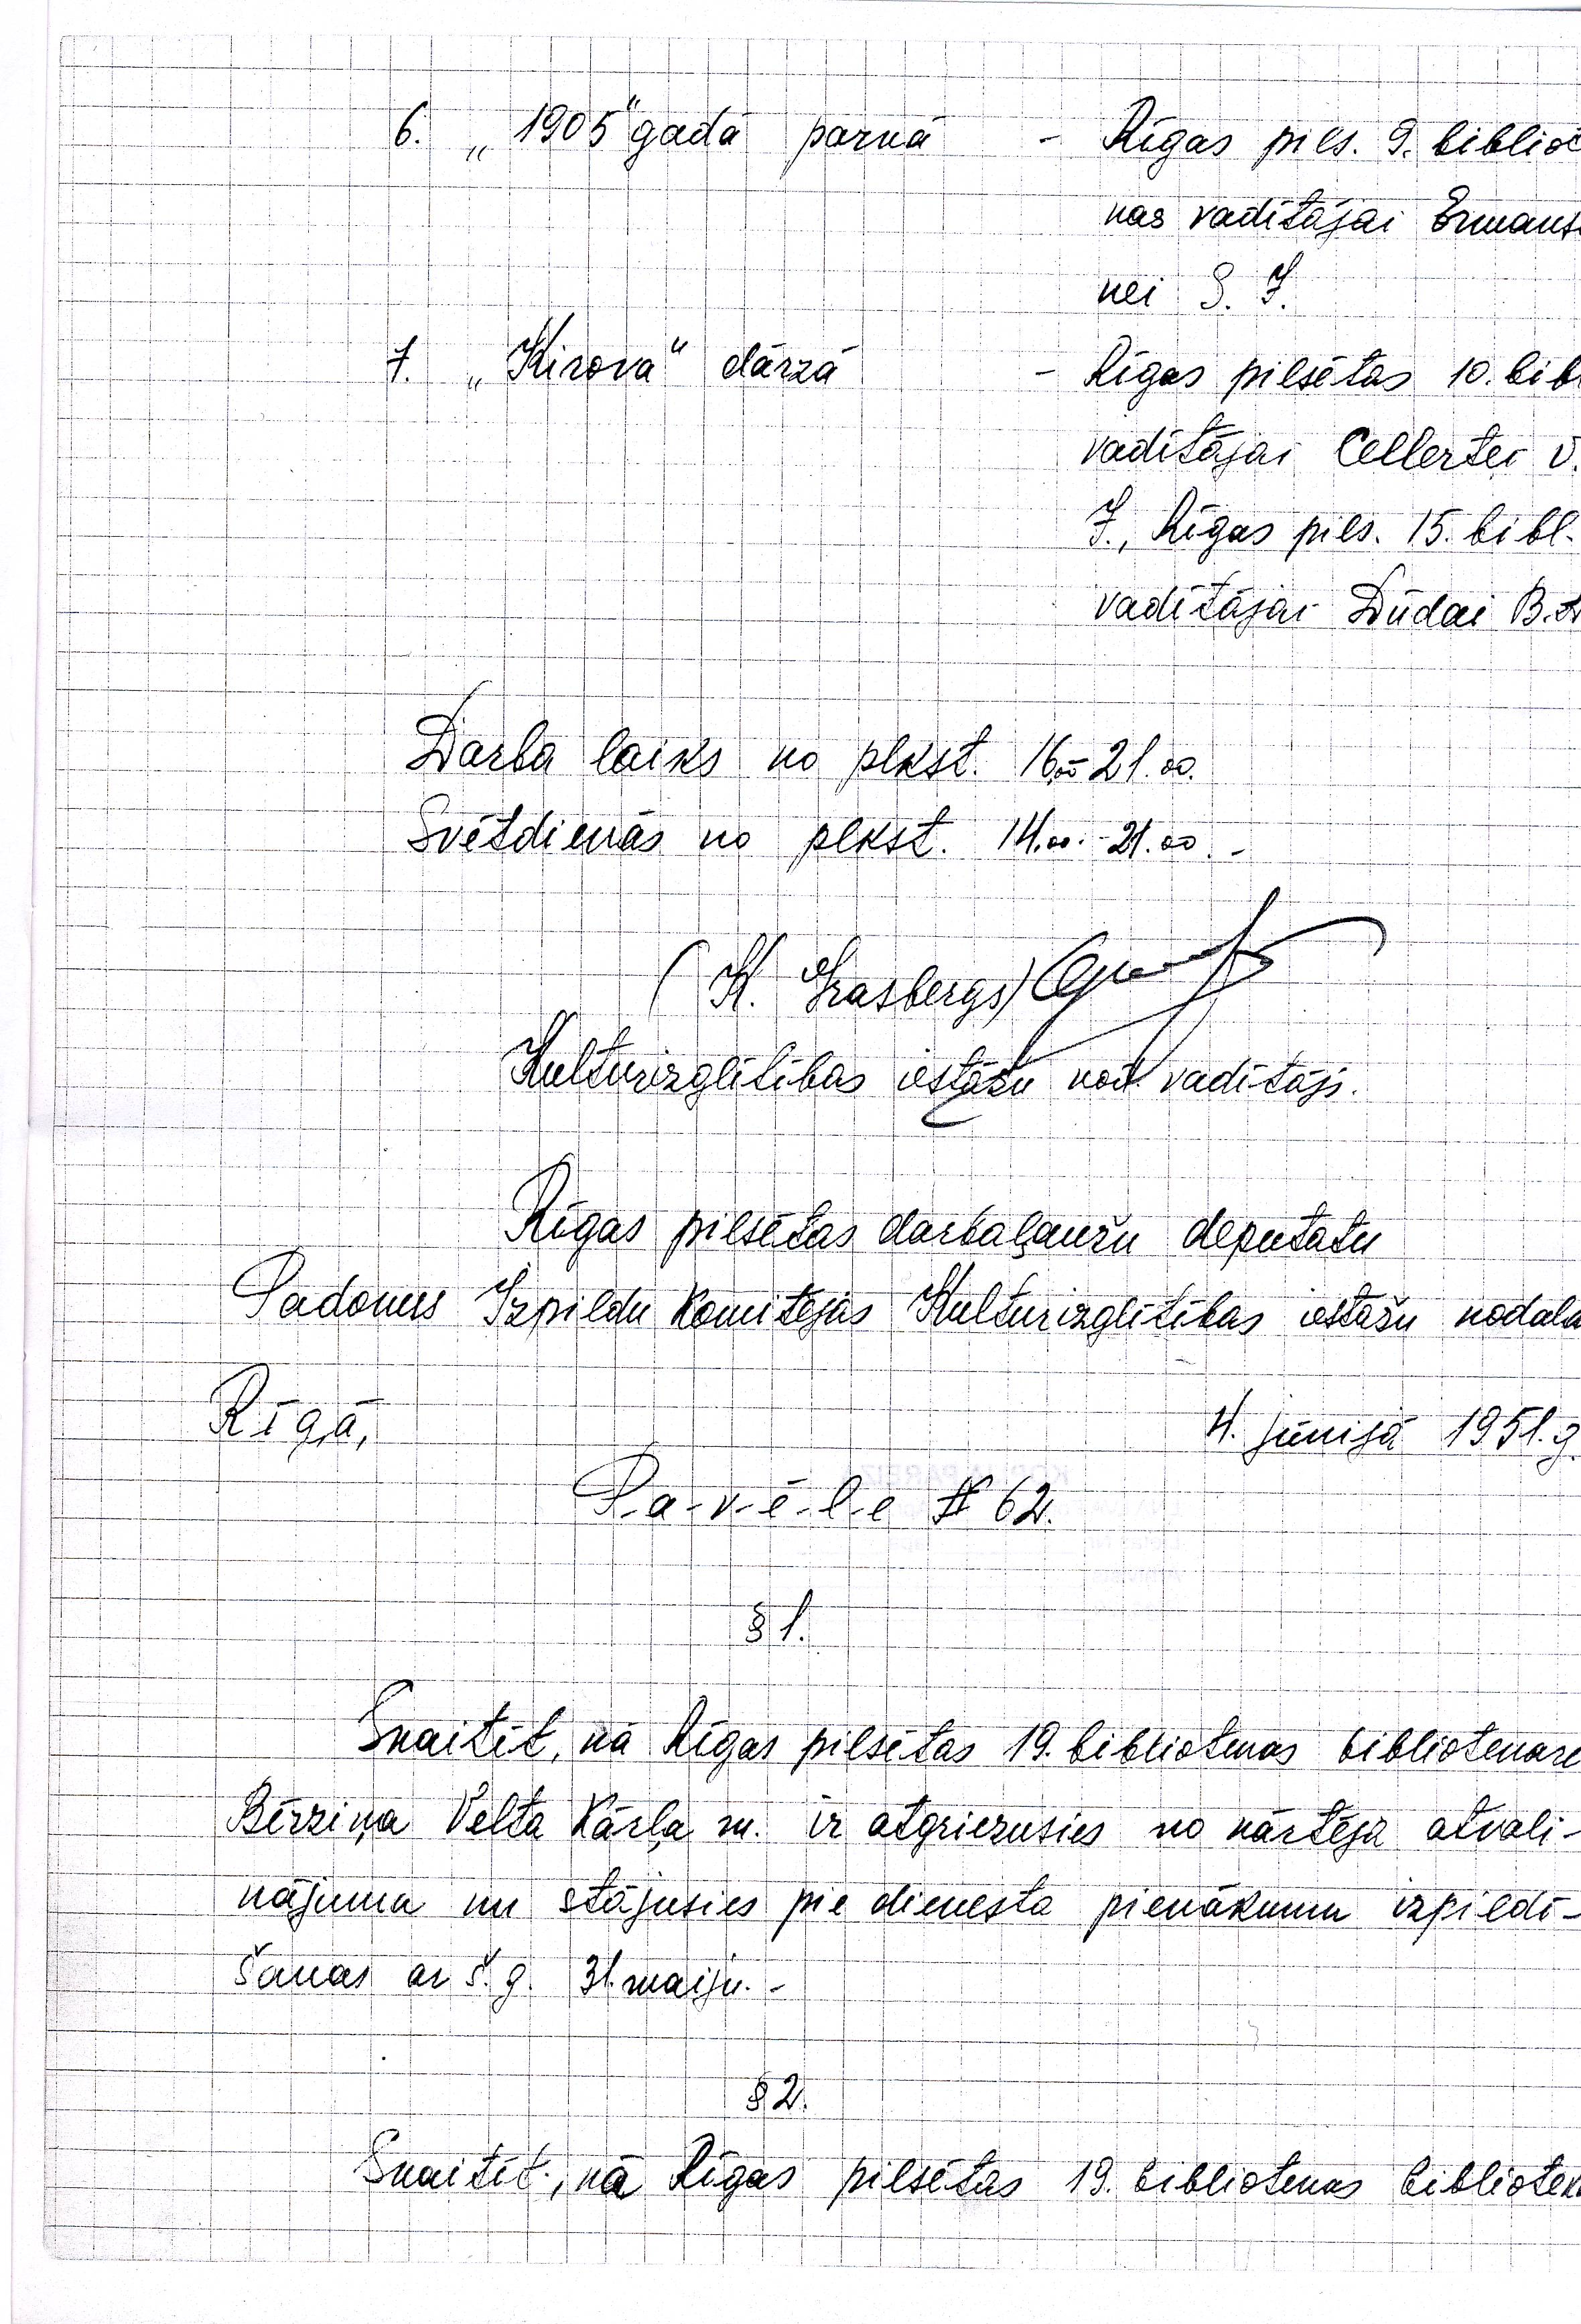 6. „1905“ gada parkā - Rīgas pils. 9. bibliot
kas vadītājai Ermans
nei S. J.
7. „Kirova“ dārzā - Rīgas pilsētas 10. bibl
vadītājai Cellertei V.
J., Rīgas pils. 15. bibl.
vadītājai Dūdai B. A
Darba laiks no plkst. 16.00-21.00.
Svētdienās no plkst. 14.00.-21.00.-
(K. Grasbergs)
Kulturizglītības iestāžu nod. vadītājs.
Rīgas pilsētas darbaļaužu deputatu
Padomes Izpildu Komitejas Kulturizglītības iestāžu nodaļa
Rīgā, 4. jūnijā 1951.g.
P-a-v-ē-l-e № 62.
§ 1.
Skaitīt, ka Rīgas pilsētas 19. bibliotekas bibliotekare
Bērziņa Velta Kārļa m. ir atgriezusies no kārtējā atvaļi-
nājuma un stājusies pie dienesta pienākumu izpildī-
šanas ar š.g. 31. maiju.-
§ 2.
Skaitīt, ka Rīgas pilsētas 19. bibliotekas bibliotek